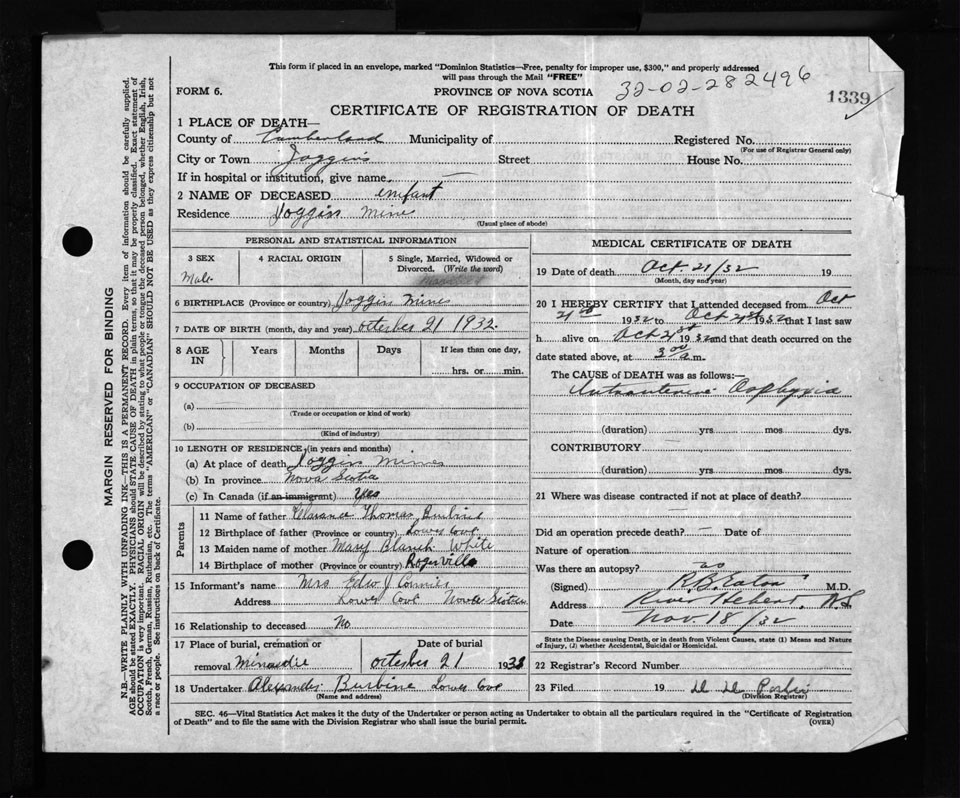 This form if placed in an envelope, marked "Dominion Statistics—Free, penalty for improper use, $300," and properly addressed
will pass through the Mail "FREE"
FORM 6.
PROVINCE OF NOVA SCOTIA
32-02-282496
1339
CERTIFICATE OF REGISTRATION OF DEATH
1 PLACE OF DEATH—
County of Cumberland Municipality of Registered No.
(For use of Registrar General only)
City or Town Joggins Street House No.
If in hospital or institution, give name
2 NAME OF DECEASED enfant
Residence Joggin Mines
(Usual place of abode)
PERSONAL AND STATISTICAL INFORMATION
3 SEX
Male
4 RACIAL ORIGIN
5 Single, Married, Widowed or
Divorced. (Write the word)
6 BIRTHPLACE (Province or country) Joggin Mines
7 DATE OF BIRTH (month, day and year) octerber 21 1932
8 AGE IN
Years
Months
Days
If less than one day,
hrs. or min.
9 OCCUPATION OF DECEASED
(a)
(Trade or occupation or kind of work)
(b)
(Kind of industry)
10 LENGTH OF RESIDENCE, (in years and months)
(a) At place of death Joggin Mines
(b) In province Nova Scotia
(c) In Canada (if an immigrant) Yes
Parents
11 Name of father Clarance Thomas Burbine
12 Birthplace of father (Province or country) Lower Cove
13 Maiden name of mother Mary Blanch White
14 Birthplace of mother (Province or country) Rogerville
15 Informant's name Mrs Edw J
Address Lower Cove Nova Scotia
16 Relationship to deceased No
17 Place of burial, cremation or
removal Minudie
Date of burial
octerber 21 1932
18 Undertaker Alexander Burbine Lower Cove
(Name and address)
MEDICAL CERTIFICATE OF DEATH
19 Date of death Oct. 21/32 19
(Month, day and year)
20 I HEREBY CERTIFY that I attended deceased from Oct
21st 1932 to Oct 21st 1932 that I last saw
h alive on Oct 21st 1932 and that death occurred on the
date stated above, at 3 00 a.m.
The CAUSE of DEATH was as follows:—
Asphyxia
(duration) yrs mos dys.
CONTRIBUTORY
(duration) yrs. mos. dys.
21 Where was disease contracted if not at place of death?
Did an operation precede death? — Date of
Nature of operation
Was there an autopsy? no
(Signed) R.B. Eaton M.D.
Address River Hebert, N.S.
Date Nov. 18/32
State the Disease causing Death, or in death from Violent Causes, state (1) Means and Nature
of Injury, (2) whether Accidental, Suicidal or Homicidal.
22 Registrar's Record Number
23 Filed 19
(Division Registrar)
SEC. 46—Vital Statistics Act makes it the duty of the Undertaker or person acting as Undertaker to obtain all the particulars required in the "Certificate of Registration
of Death" and to file the same with the Division Registrar who shall issue the burial permit.
(OVER)
MARGIN RESERVED FOR BINDING
N.B.—WRITE PLAINLY WITH UNFADING INK—THIS IS A PERMANENT RECORD. Every item of information should be carefully supplied.
AGE should be stated EXACTLY. PHYSICIANS should STATE CAUSE OF DEATH in plain terms, so that it may be properly classified. Exact statement of
OCCUPATION is very important. RACIAL ORIGIN will be described by stating to what people or tongue the deceased person belonged, whether English, Irish,
Scotch, French, German, Russian, Ruthenian, etc. The terms "AMERICAN" or "CANADIAN" SHOULD NOT BE USED as they express citizenship but not
a race or people. See instructions on back of Certificate.